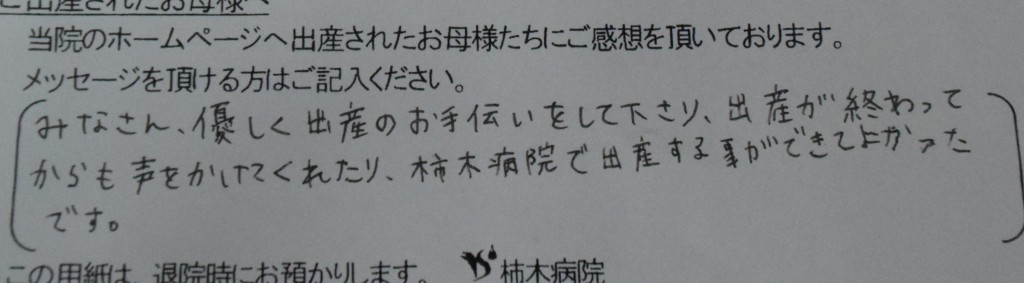 ご出産されたお母様へ
当院のホームページへ出産されたお母様たちにご感想を頂いております。
メッセージを頂ける方はご記入ください。
みなさん、優しく出産のお手伝いをして下さり、出産が終わって
からも声をかけてくれたり、柿木病院で出産する事ができてよかった
です。
この用紙は、退院時にお預かりします。 柿木病院